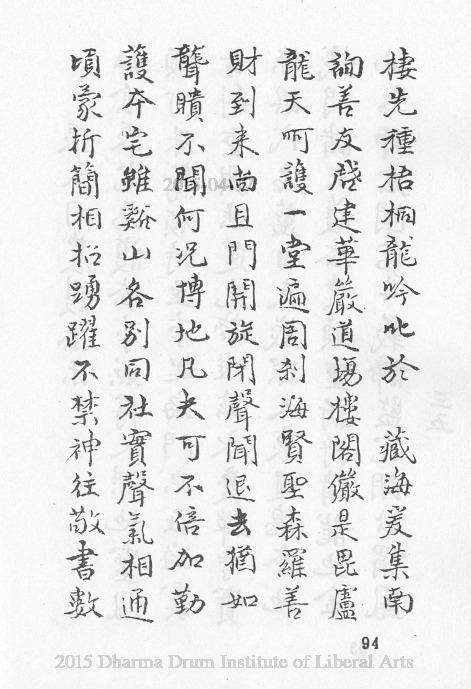 棲先種梧桐龍吟叱於　藏海爰集南
詢善友啓建華嚴道場樓閣儼是毘盧
龍天呵護一堂遍周刹海賢聖森羅善
財到来尚且門開旋閉聲聞退去猶如
聾瞶不聞何况博地凡夫可不倍加勤
護夲宅雖谿山各別同社實聲氣相通
頃蒙折簡相招踴躍不禁神往敬書數
三五
94
2015 Dharma Drum Institute of Liberal Arts